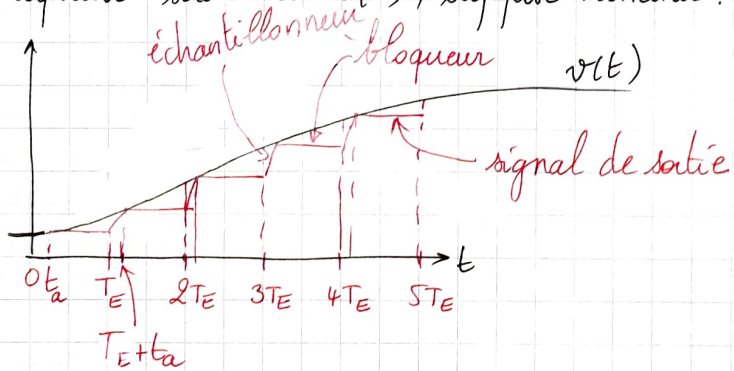 échantillonneur
bloqueur
v(t)
signal de sortie
t
0 ta TE 2TE 3TE 4TE 5TE
TE+ta